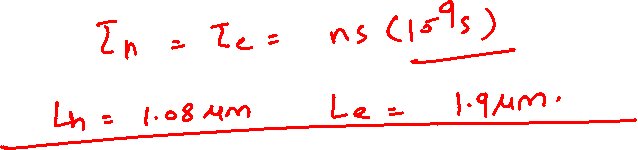 τh = τe = ns (10⁻⁹s)
Lh = 1.08 μm Le = 1.9 μm.